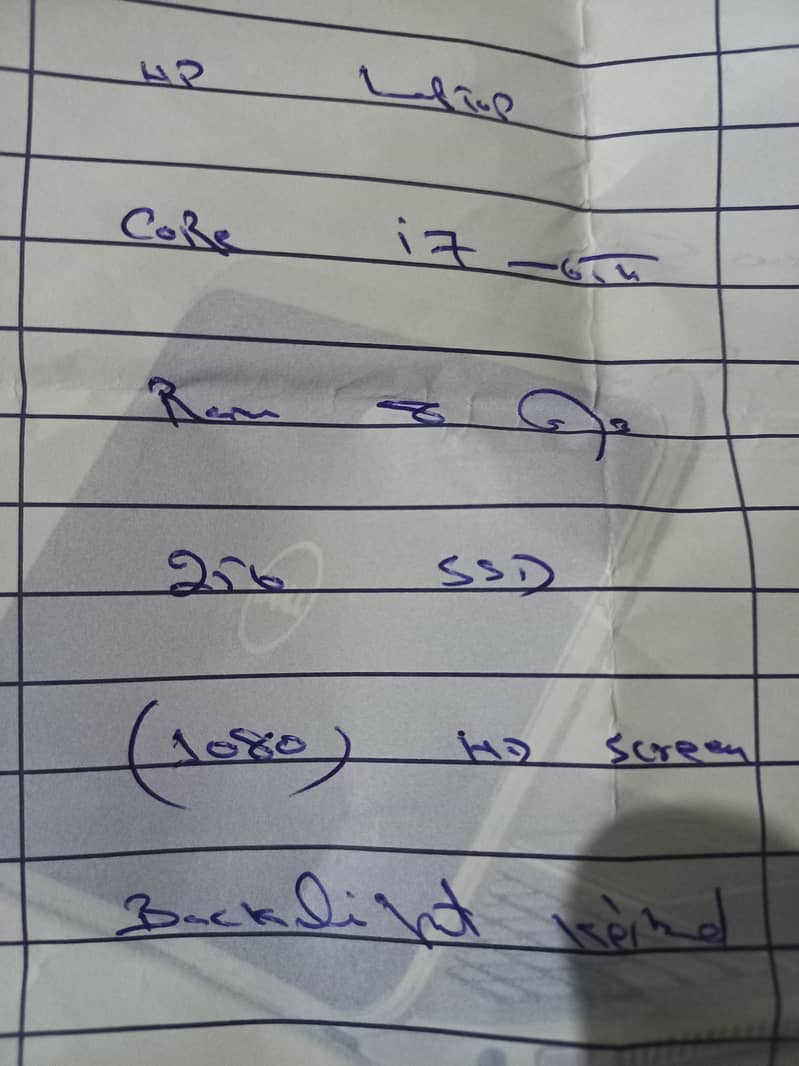 HP Laptop
CoRe i7 _6th
Ram 8 GB
256 SSD
(1080) HD screen
Backlight